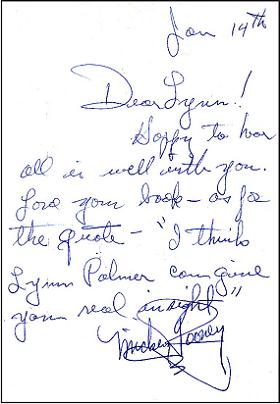 Jan 14th
Dear Lynn!
Happy to hear
all is well with you.
Love your book – as for
the quote – "I think
Lynn Palmer can give
you real insight"
Mickey Rooney